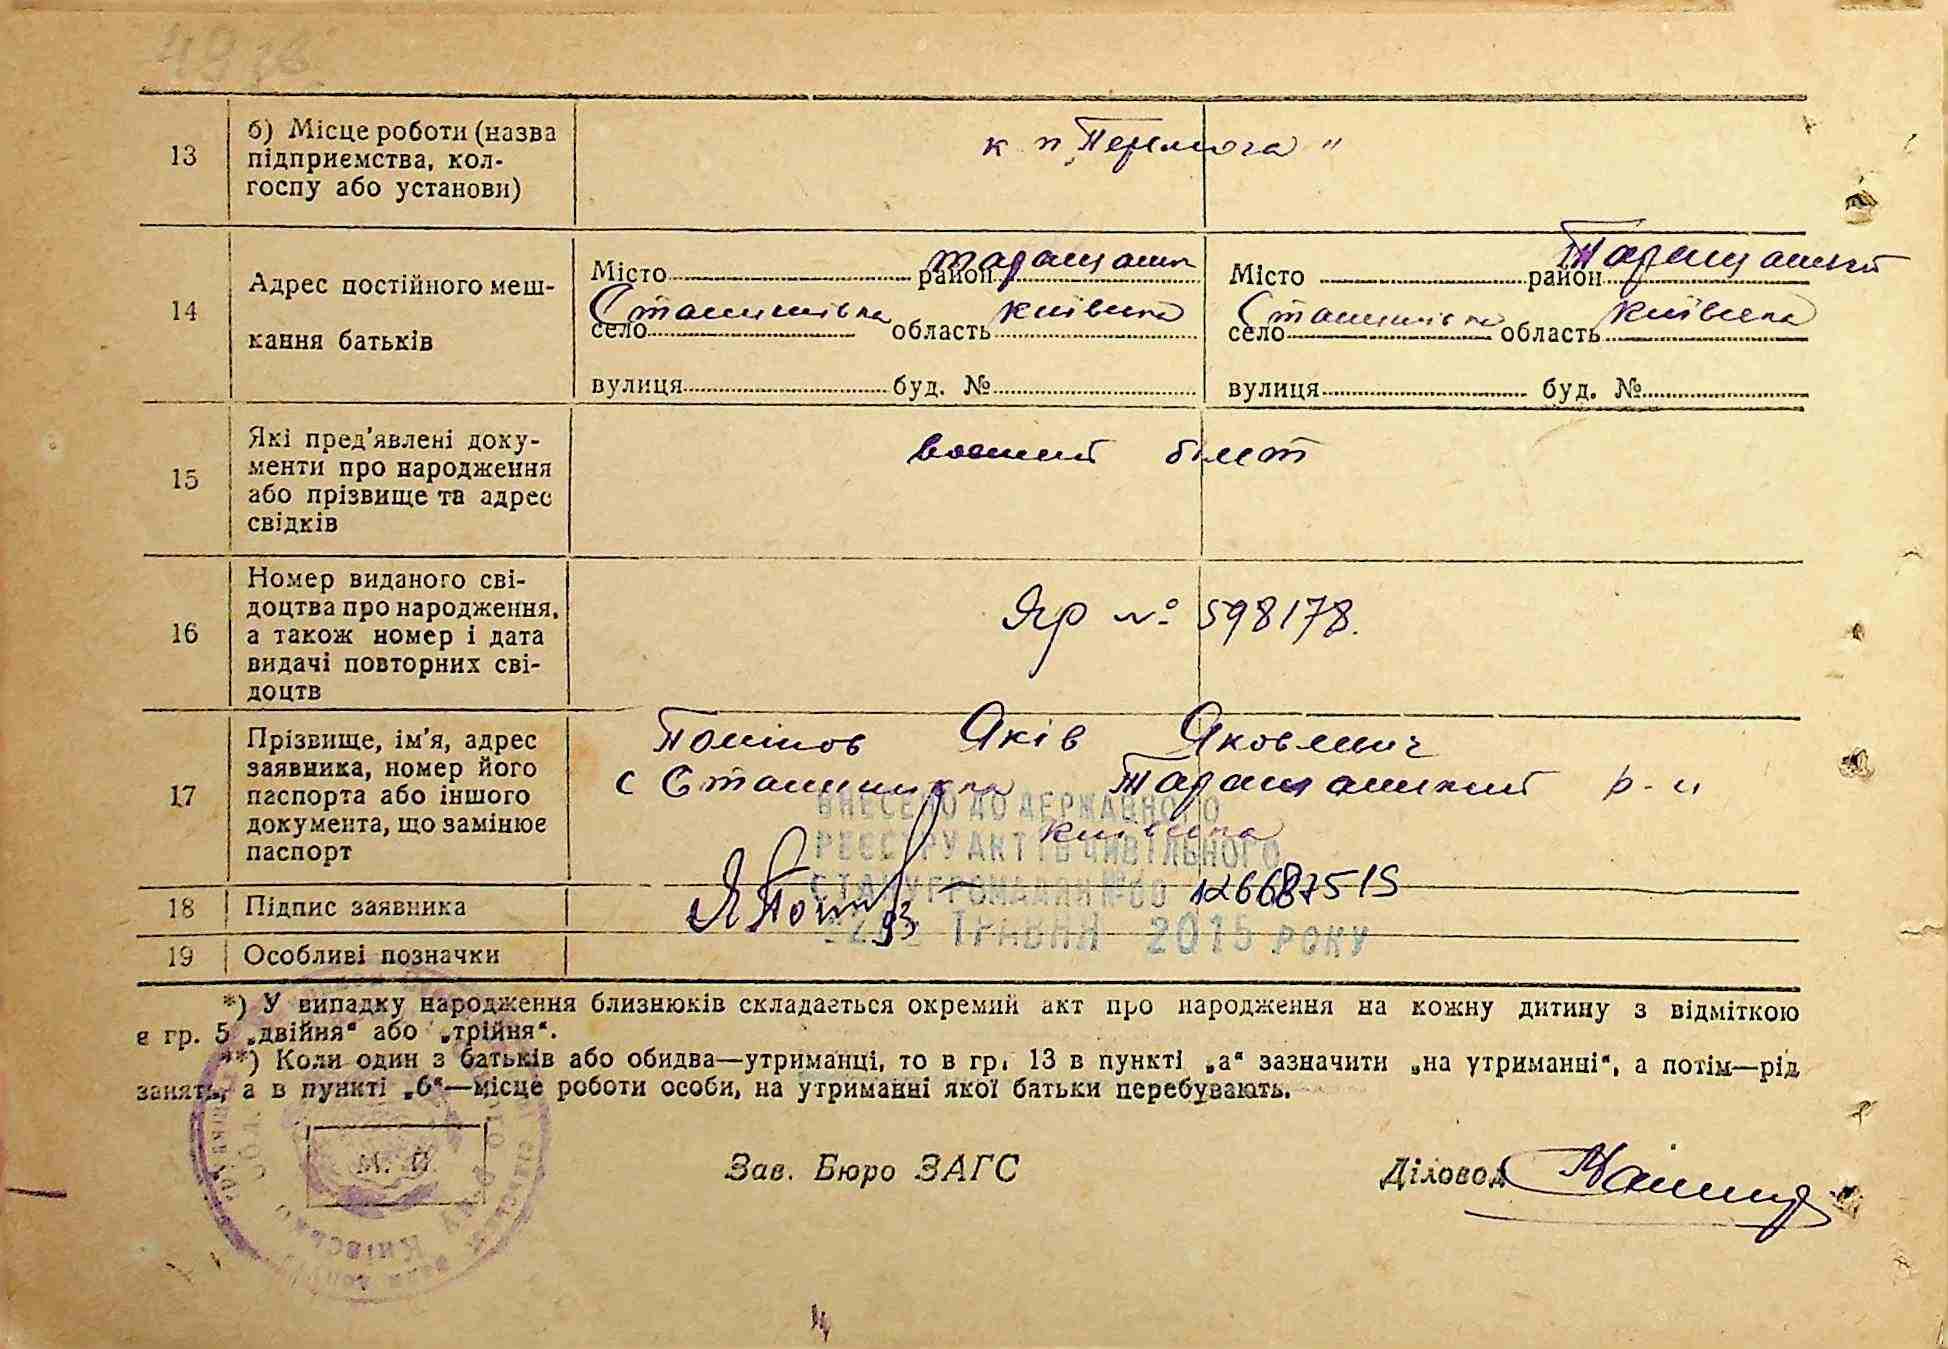 13
б) Місце роботи (назва
підприємства, кол-
госпу або установи)
к п „Перемога"
14
Адрес постійного меш-
кання батьків
Місто район Таращанск
село Сташишівка область Київська
вулиця буд. №
Місто район Таращанський
село Сташишівка область Київська
вулиця буд. №
15
Які пред'явлені доку-
менти про народження
або прізвище та адрес
свідків
воєнний білєт
16
Номер виданого сві-
доцтва про народження,
а також номер і дата
видачі повторних сві-
доцтв
ЯР № 598178.
17
Прізвище, ім'я, адрес
заявника, номер його
паспорта або іншого
документа, що замінює
паспорт
Яків Якович
с Таращанский р-н
Київська
ВНЕСЕНО ДО ДЕРЖАВНОГО
РЕЄСТРУ АКТІВ ЦИВІЛЬНОГО
СТАНУ ГРОМАДЯН № 00 126687515
ТРАВНЯ 2015 РОКУ
18
Підпис заявника
19
Особливі позначки
*) У випадку народження близнюків складається окремий акт про народження на кожну дитину з відміткою
в гр. 5 „двійня" або „трійня".
**) Коли один з батьків або обидва—утриманці, то в гр. 13 в пункті „а" зазначити „на утриманні", а потім—рід
занять, а в пункті „б"—місце роботи особи, на утриманні якої батьки перебувають.
М. П.
Зав. Бюро ЗАГС
Діловод